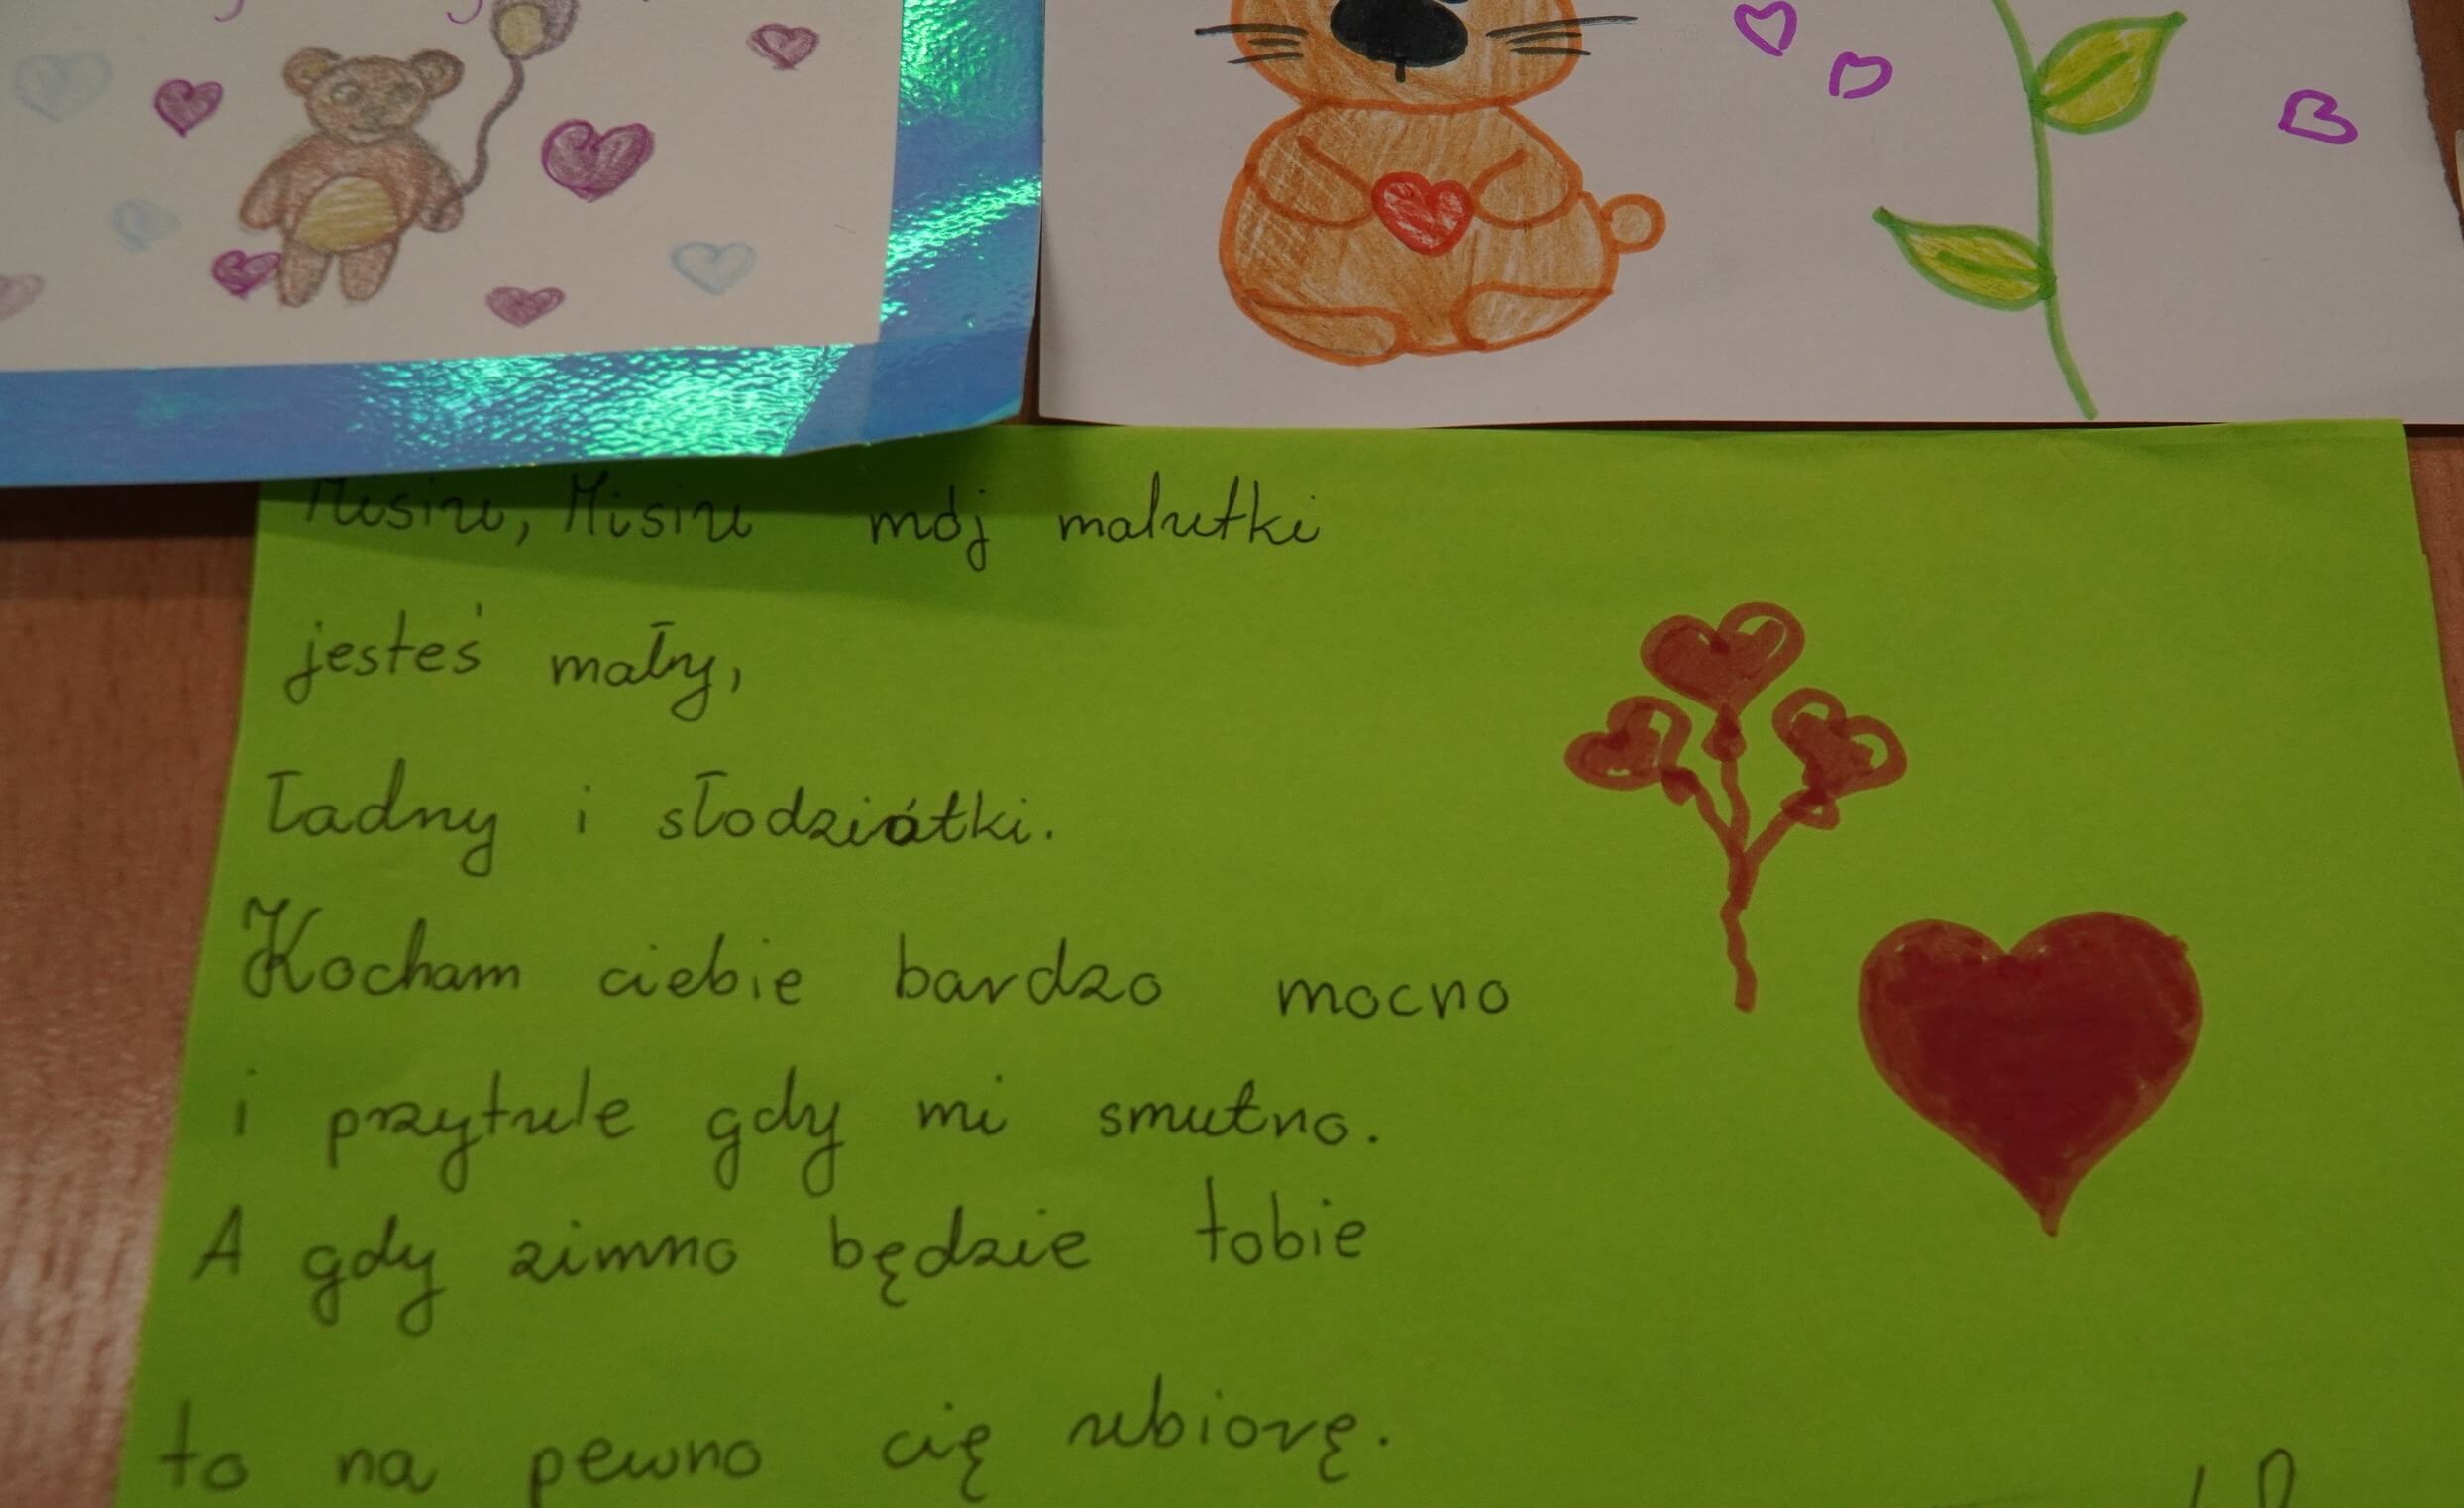 Misiu, Misiu mój malutki
jesteś mały,
ładny i słodziótki.
Kocham ciebie bardzo mocno
i przytule gdy mi smutno.
A gdy zimno będzie tobie
to na pewno cię ubiorę.